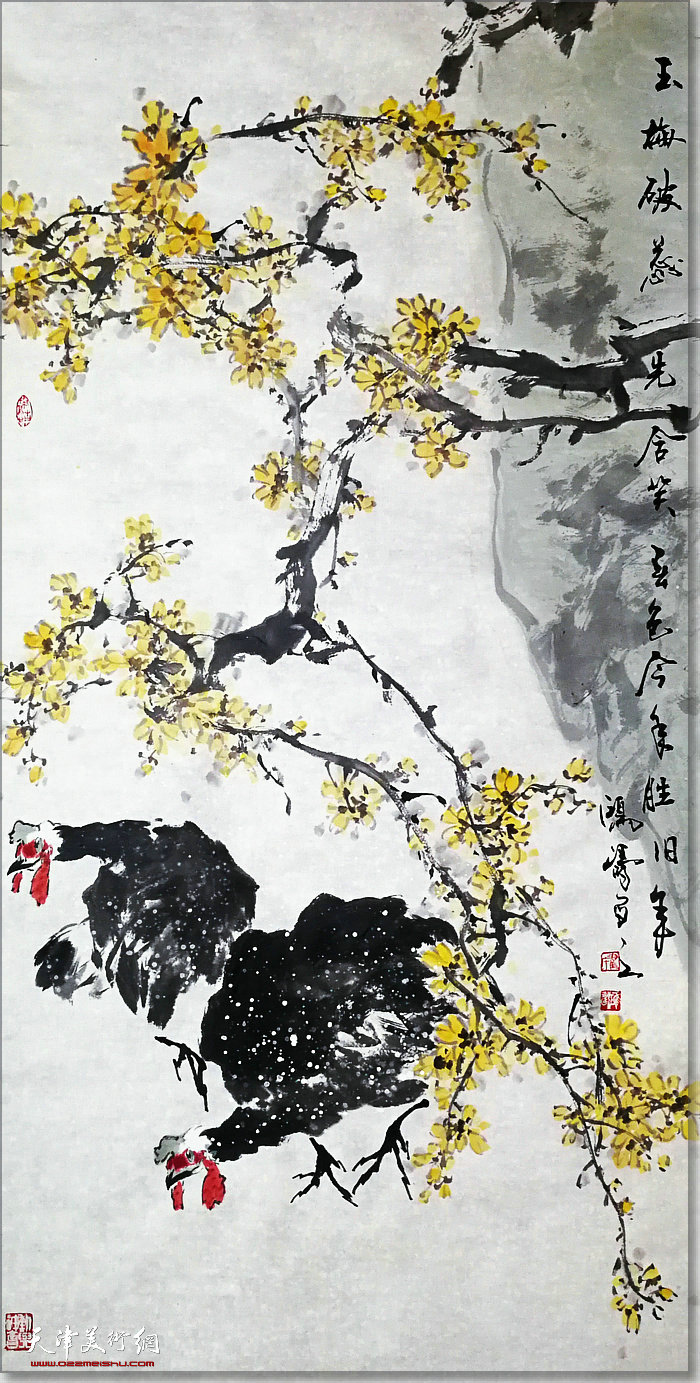 玉梅破蕊先含笑春色今年胜旧年
天津美術網
www.022meishu.com